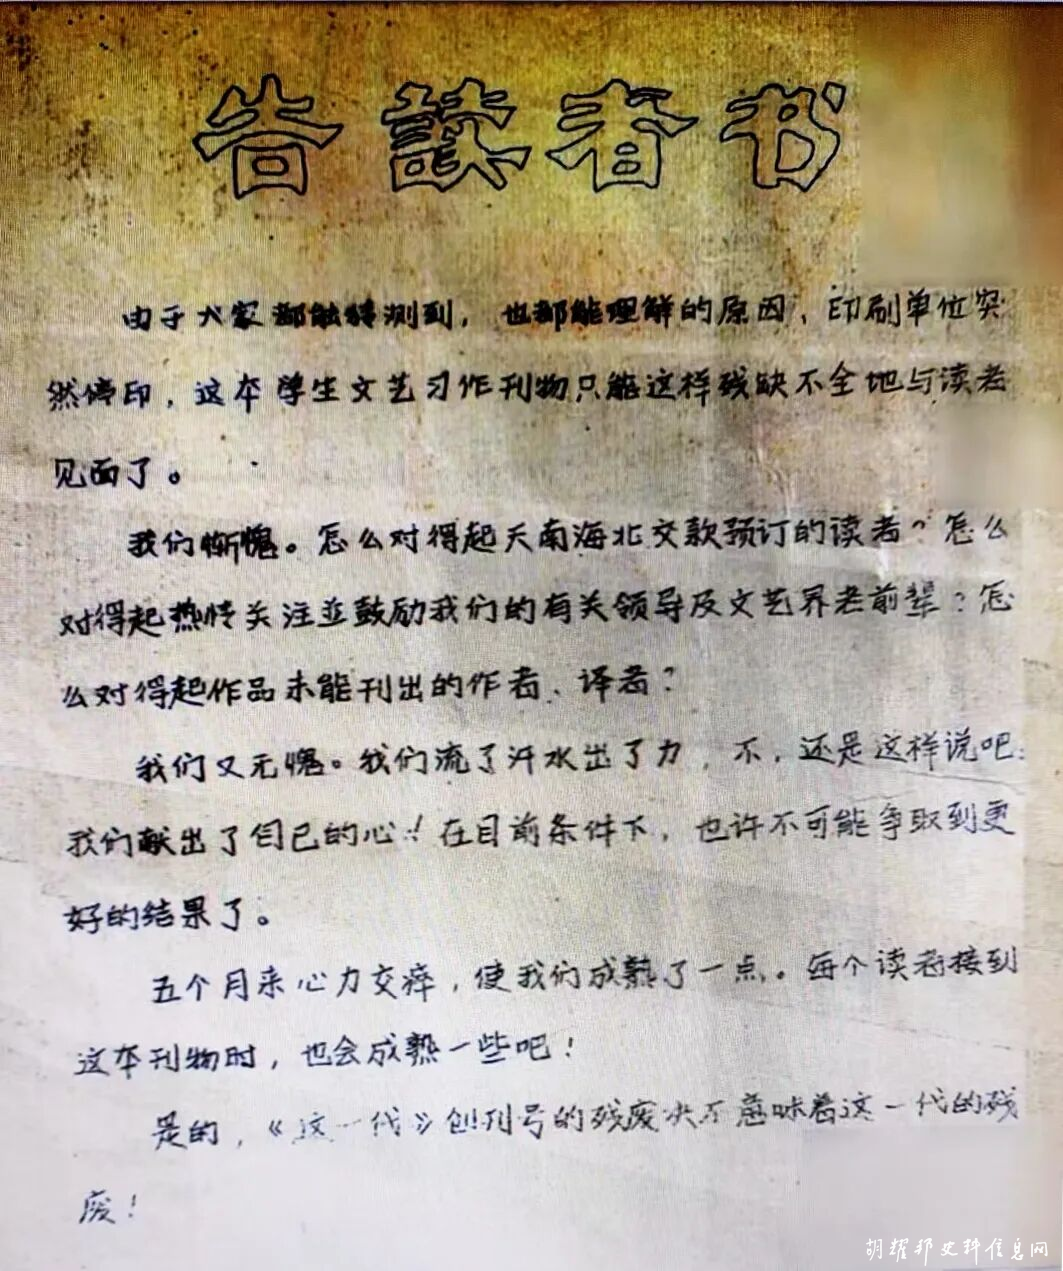 告读者书
由于大家都能猜测到，也都能理解的原因，印刷单位突
然停印，这本学生文艺习作刊物只能这样残缺不全地与读者
见面了。
我们惭愧。怎么对得起天南海北交款预订的读者？怎么
对得起热情关注并鼓励我们的有关领导及文艺界老前辈？怎
么对得起作品未能刊出的作者、译者？
我们又无愧。我们流了汗水出了力，不，还是这样说吧：
我们献出了自己的心！在目前条件下，也许不可能争取到更
好的结果了。
五个月来心力交瘁，使我们成熟了一点。每个读者接到
这本刊物时，也会成熟一些吧！
是的，《这一代》创刊号的残废决不意味着这一代的残
废！
胡耀邦史料信息网